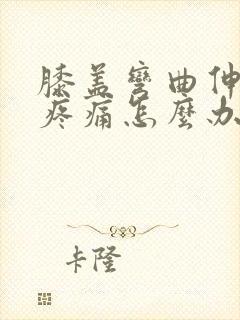 膝盖彎曲伸
疼痛怎麼办
卡隆